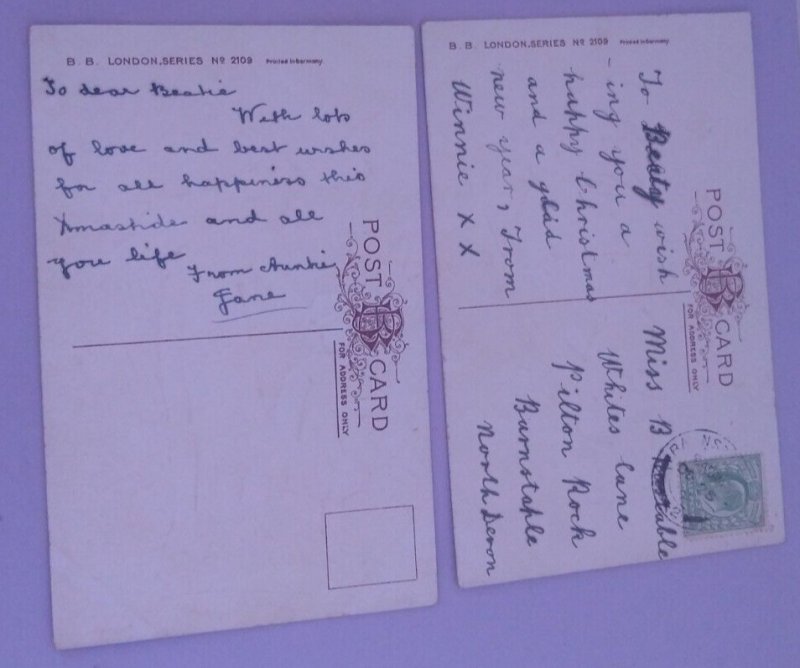 B. B. LONDON, SERIES Nº 2109 Printed in Germany
To dear Beatie
With lots
of love and best wishes
for all happiness this
Xmastide and all
you life
From Auntie
Jane
POST CARD
FOR ADDRESS ONLY
B. B. LONDON, SERIES Nº 2109 Printed in Germany
To Beaty wish
-ing you a
happy Christmas
and a glad
new year, From
Winnie X X
POST CARD
FOR ADDRESS ONLY
Miss B
Whites lane
Pilton Rock
Barnstaple
North Devon